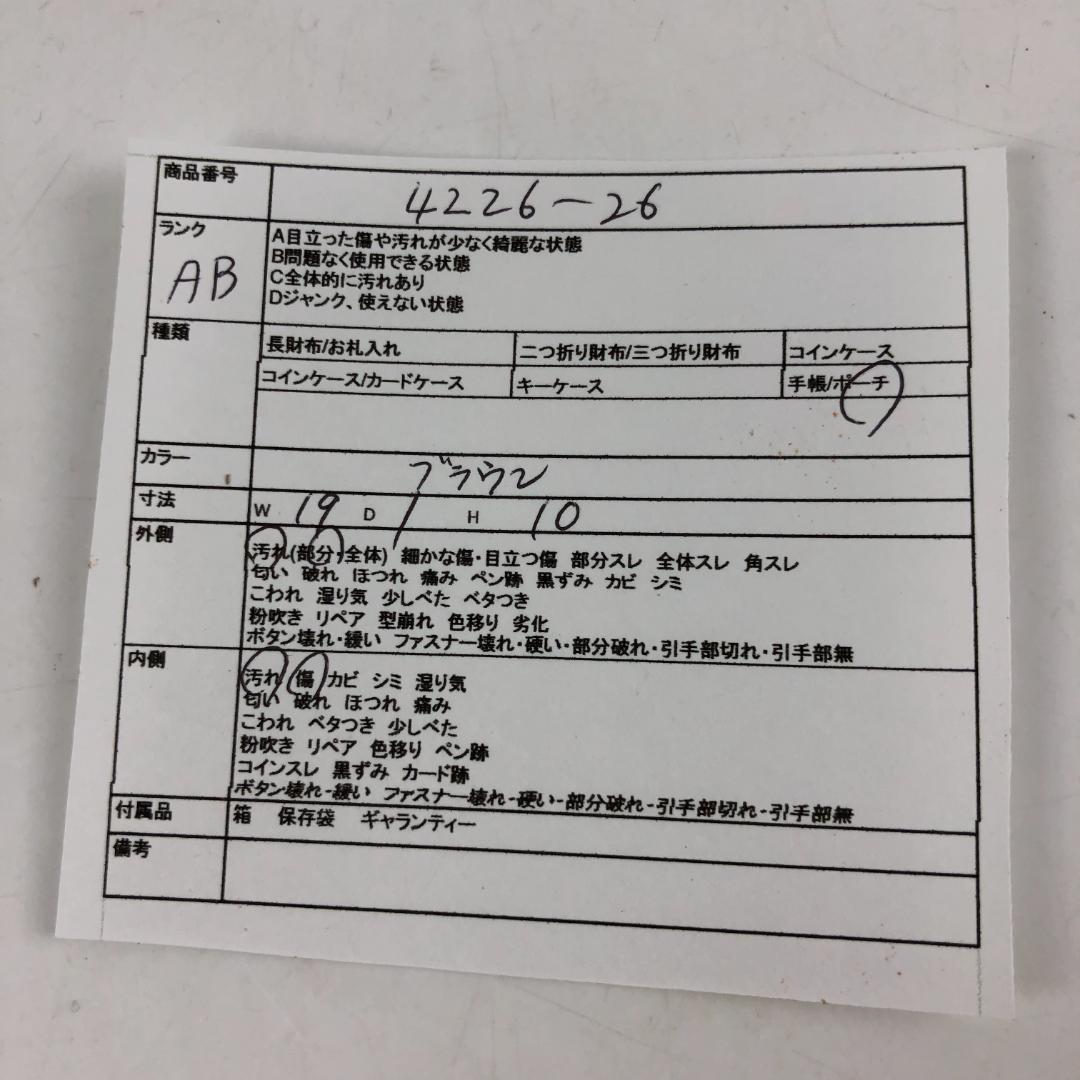 商品番号 4226-26
ランク AB
A目立った傷や汚れが少なく綺麗な状態
B問題なく使用できる状態
C全体的に汚れあり
Dジャンク、使えない状態
種類
長財布/お札入れ 二つ折り財布/三つ折り財布 コインケース
コインケース/カードケース キーケース 手帳/ポーチ
カラー ブラウン
寸法 W 19 D 1 H 10
外側
汚れ(部分・全体) 細かな傷・目立つ傷 部分スレ 全体スレ 角スレ
匂い 破れ ほつれ 痛み ペン跡 黒ずみ カビ シミ
こわれ 湿り気 少しべた ベタつき
粉吹き リペア 型崩れ 色移り 劣化
ボタン壊れ・緩い ファスナー壊れ・硬い・部分破れ・引手部切れ・引手部無
内側
汚れ 傷 カビ シミ 湿り気
匂い 破れ ほつれ 痛み
こわれ ベタつき 少しべた
粉吹き リペア 色移り ペン跡
コインスレ 黒ずみ カード跡
ボタン壊れ-緩い ファスナー壊れ-硬い-部分破れ-引手部切れ-引手部無
付属品 箱 保存袋 ギャランティー
備考